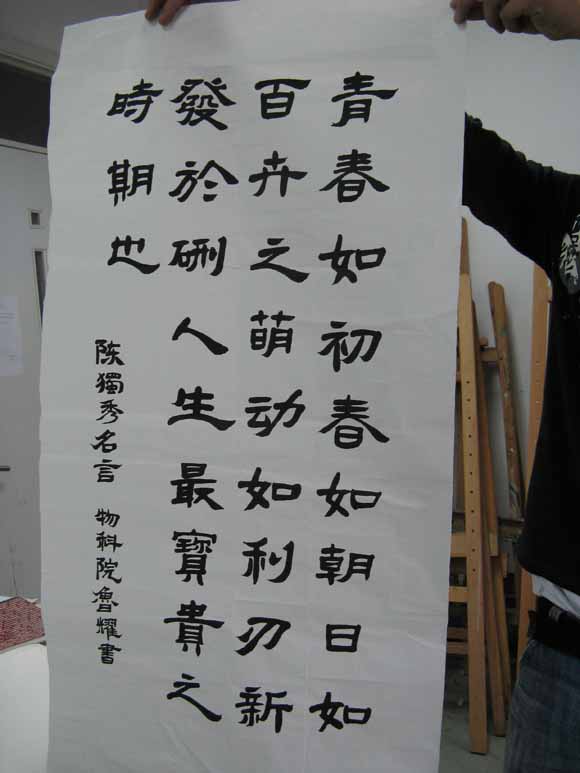 青春如初春如朝日如
百卉之萌动如利刃新
發於硎人生最寶貴之
時期也
陈獨秀名言 物科院魯耀書